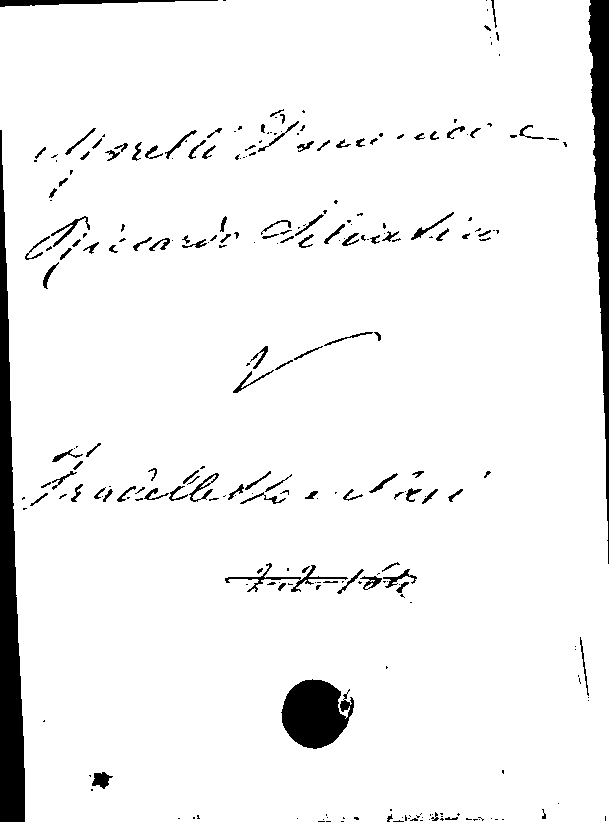 Morelli Domenico e
Riccardo Selvatico
V
Fradeletto e Nasi